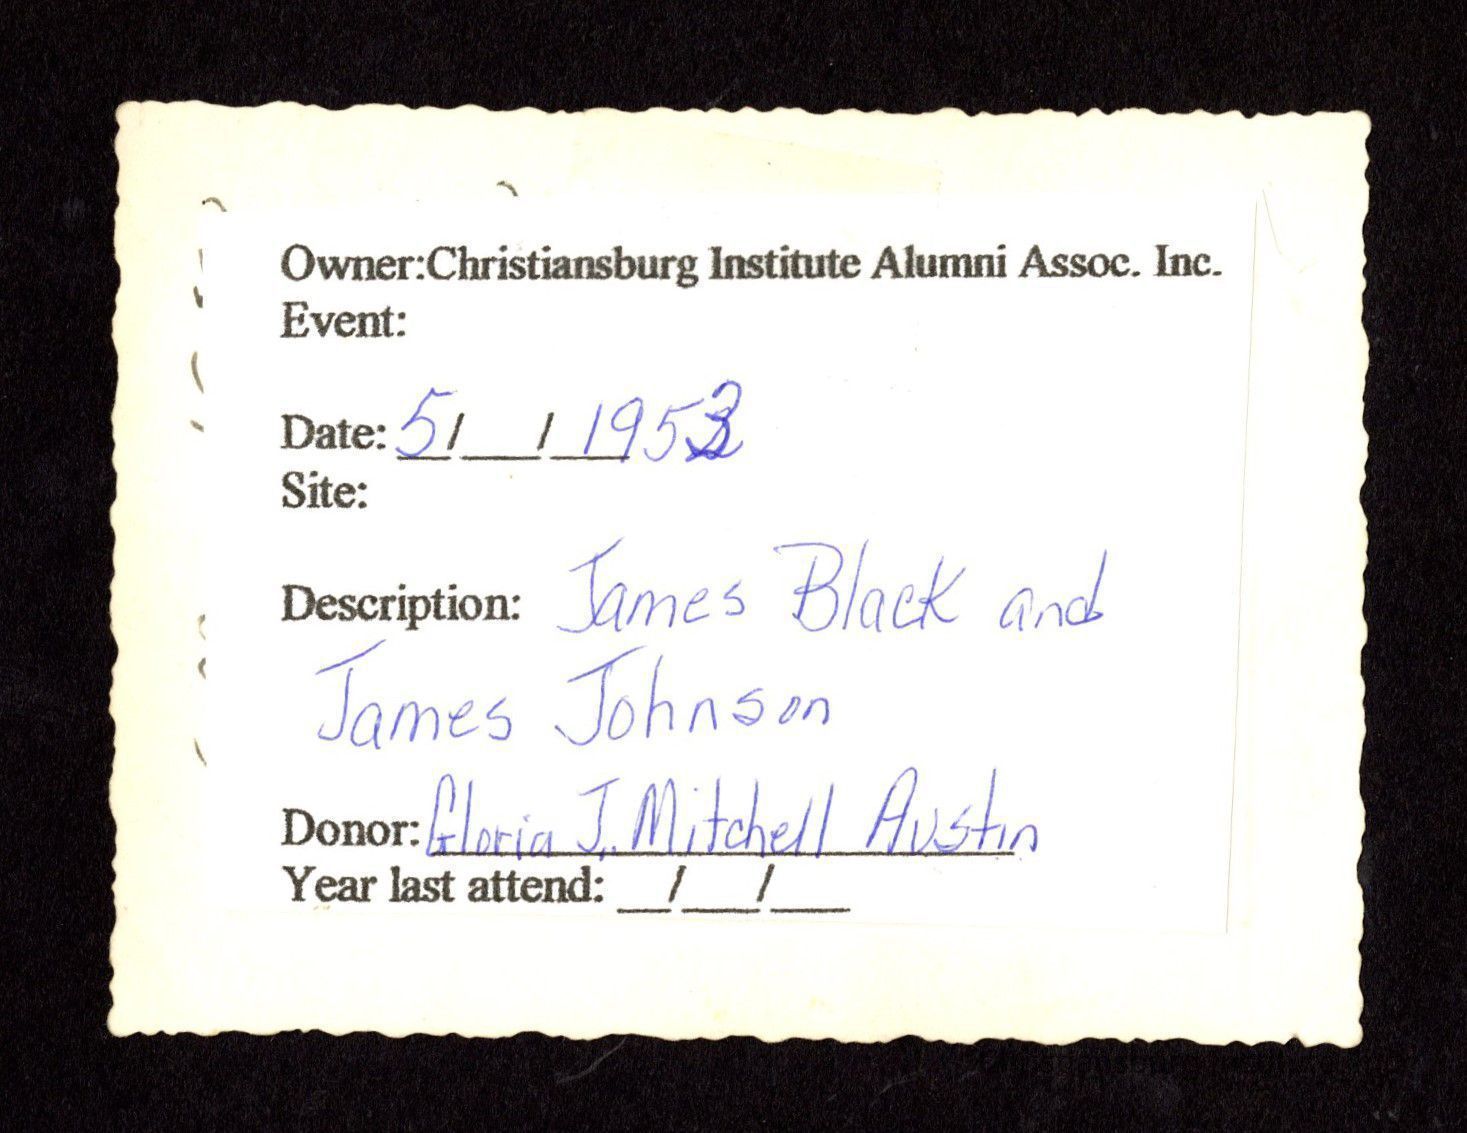 Owner:Christiansburg Institute Alumni Assoc. Inc.
Event:
Date: 5/__/1953
Site:
Description: James Black and
James Johnson
Donor: Gloria J. Mitchell Austin
Year last attend: __/__/__